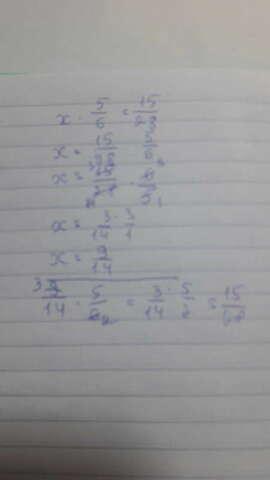 x · 5/6 = 15/28
x = 15/28 : 5/6
x = 15/28 · 6/5
x = 3/14 · 3/1
x = 9/14
9/14 · 5/6 = 3/14 · 5/2 = 15/28